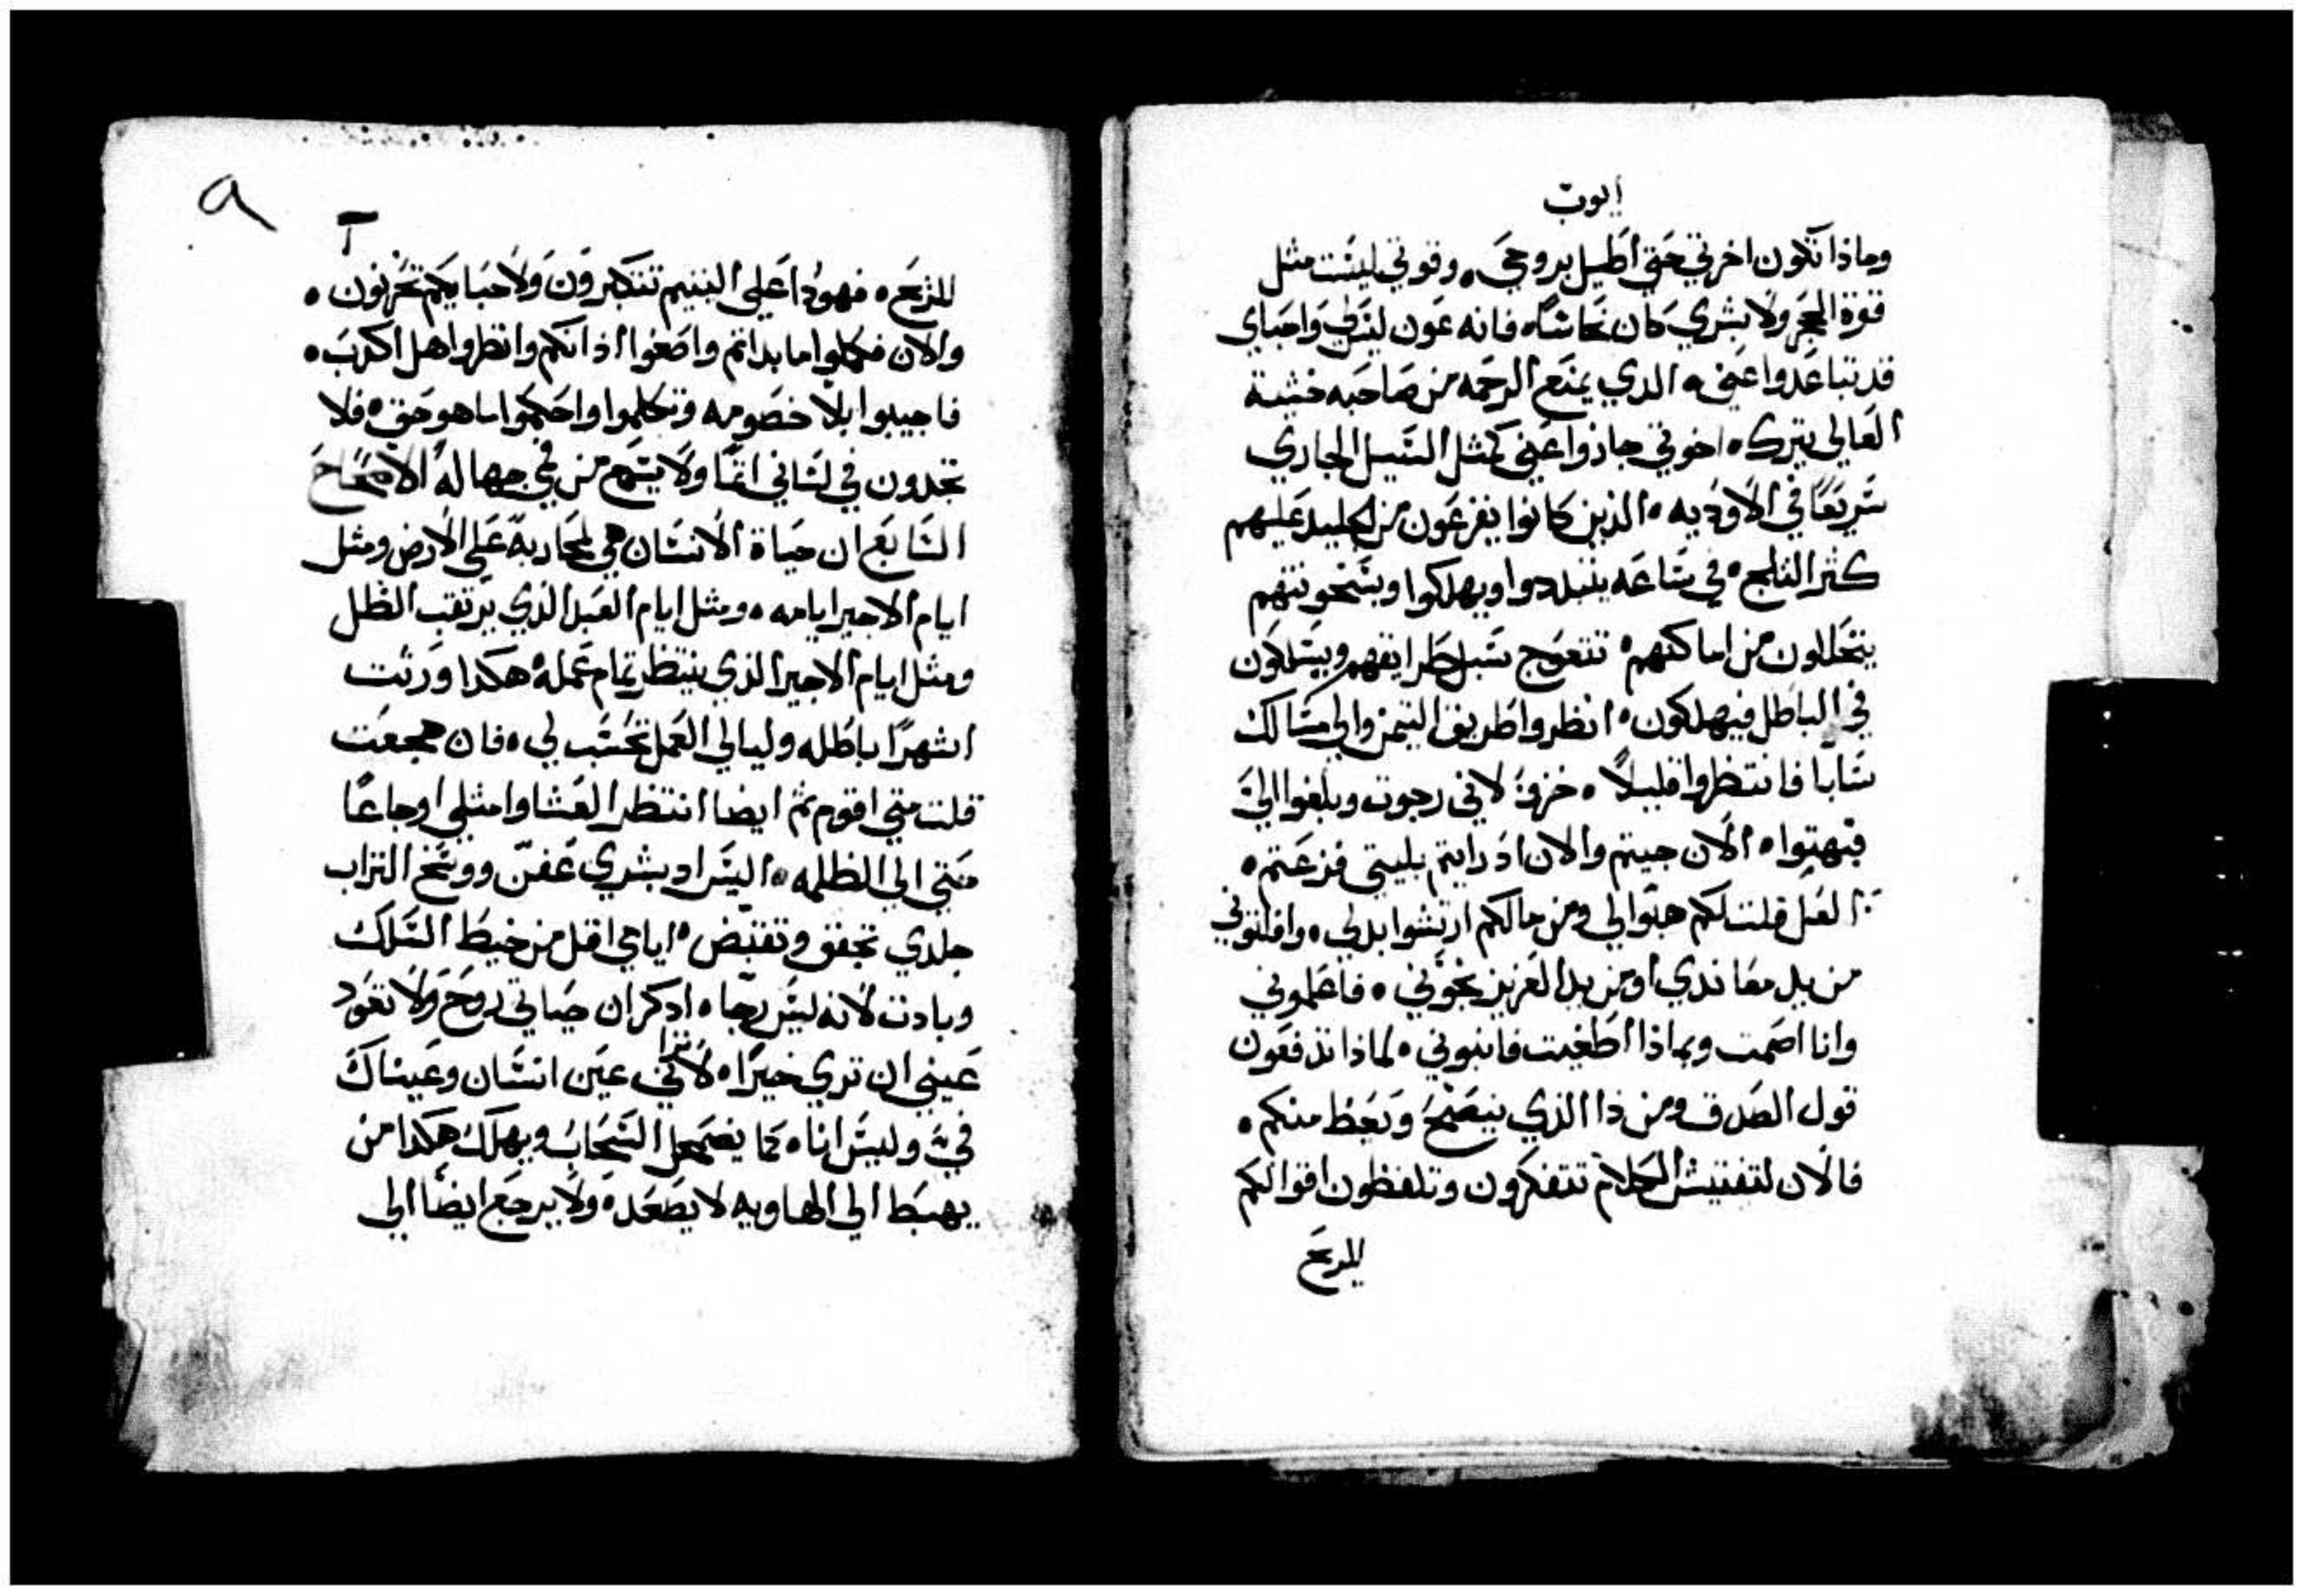 ايوب
وماذا تكون اخرتي حتي اطيل بروحي. وقوتي ليست مثل
قوة الحجر ولا بشري كان نحاسًا. فانه عون ليس لي واحباي
قد تباعدوا عني. الذي يمنع الرحمه من صاحبه خشية
العالي يترك. اخوتي جازوا عني كمثل السيل الجاري
سريعًا في الاوديه. الذين كانوا يفزعون من الجليد عليهم
كثر الثلج. في ساعه يتبددوا ويهلكوا وبسخونتهم
يتحللون من اماكنهم. تتعوج سبل طرايقهم ويسلكون
في الباطل فيهلكون. انظروا طريق التيمن والي مسالك
سابا فانتظروا قليلاً. خزوا لاني رجوت وبلغوا اليّ
فبهتوا. الان جيتم والان اذ رايتم بليتي فزعتم.
العل قلت لكم هبوا لي ومن مالكم ارتشوا بدلي. وافلتوني
من يد معاندي او من يد العزيز نجوني. فاعلموني
وانا اصمت وبماذا اطغيت فانبوني. لماذا تدفعون
قول الصدق ومن ذا الذي ينصح ويعظ منكم.
فالان لتفتيش الكلام تتفكرون وتلفظون اقوالكم
للريح
٦
للريح. فهوذا علي اليتيم تتكبرون ولاحبايكم تحزنون.
والان فكملوا ما بداتم واصغوا اذانكم وانظروا هل اكدب.
فاجيبوا بلا خصومه وتكلموا واحكموا ما هو حق. فلا
تجدون في لساني اثمًا ولا يسمع من في جهاله الاصحاح
السابع ان حياة الانسان هي محاربة علي الارض ومثل
ايام الاجير ايامه. ومثل ايام العبد الذي يرتقب الظل
ومثل ايام الاجير الذي ينتظر تمام عمله. هكذا ورثت
اشهرًا باطله وليالي العمل تحسب لي. فان هجعت
قلت متي اقوم ثم ايضا انتظر العشا وامتلي اوجاعًا
حتي الي الظلمه. اليس ادبشري عفن ووسخ التراب
جلدي تجفف وتقبض. ايامي اقل من خيط السلك
وبادت لانه ليس رجاه ادكر ان حياتي روح ولا تعود
عيني ان تري خيرًا. لا تراني عين انسان وعيناك
فيّ وليس انا. كما يضمحل السحاب ويهلك هكذا من
يهبط الي الهاويه لا يصعد. ولا يرجع ايضا الي